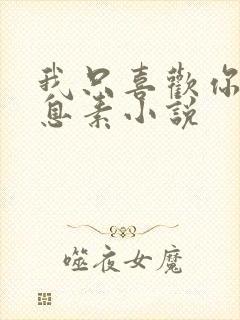 我只喜歡你
息素小說
噬夜女魔